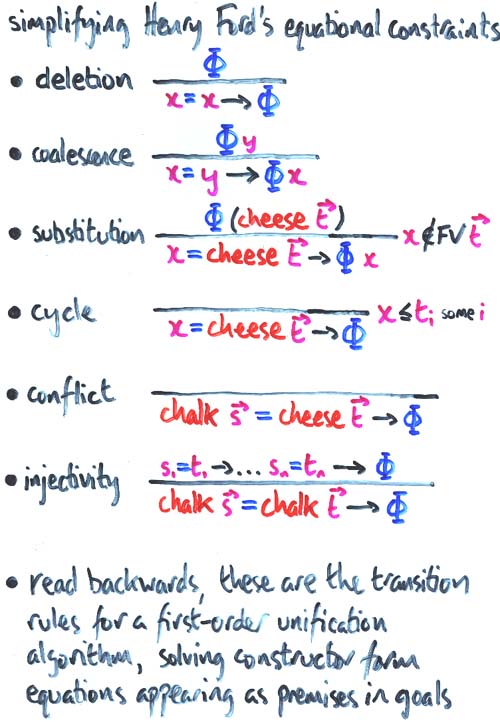 simplifying Henry Ford's equational constraints
• deletion Φ
x = x → Φ
• coalescence Φ y
x = y → Φ x
• substitution Φ (cheese t⃗) x ∉ FV t⃗
x = cheese t⃗ → Φ x
• cycle x ≤ tᵢ some i
x = cheese t⃗ → Φ
• conflict
chalk s⃗ = cheese t⃗ → Φ
• injectivity s₁=t₁ → ... sₙ=tₙ → Φ
chalk s⃗ = chalk t⃗ → Φ
• read backwards, these are the transition
rules for a first-order unification
algorithm, solving constructor form
equations appearing as premises in goals